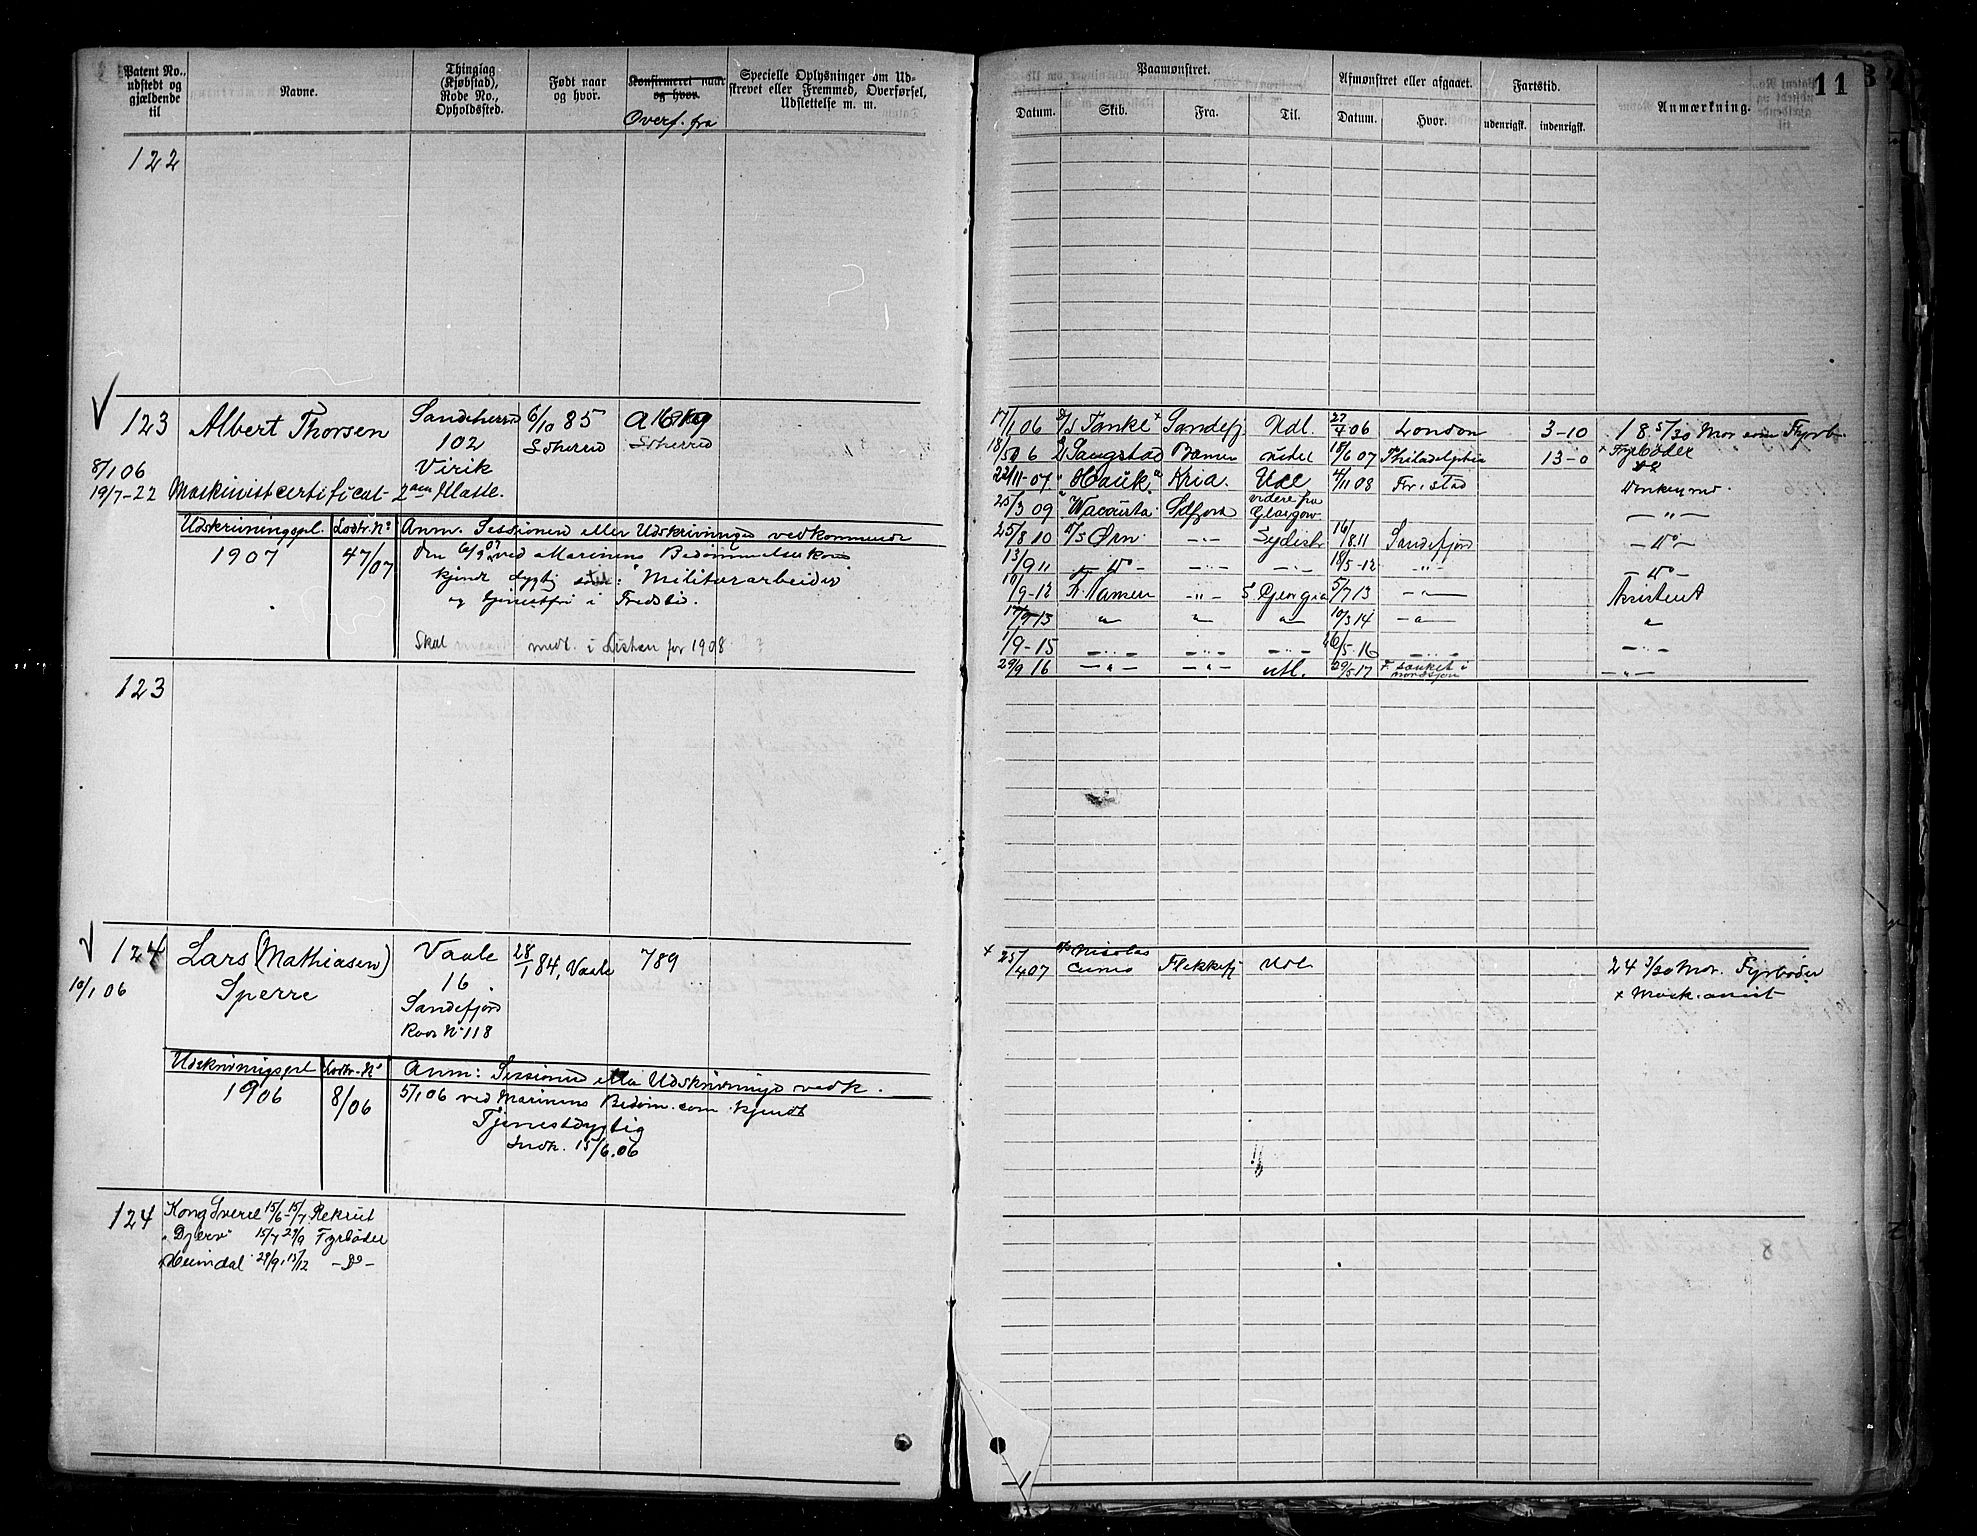 Patent No., udstedt og gjældende til
Navne.
Thinglag (Kjøbstad), Rode No., Opholdssted.
Født naar og hvor.
Konfirmeret naar og hvor.
Overf. fra
Specielle Oplysninger om Udskrevet eller Fremmed, Overførsel, Udslettelse m. m.
122
123 Albert Thorsen Sandeherred 6/10 85 A
102 Soherred Soherred
8/1 06 Virik
19/7-22 Maskinistcertificat - 2den Klasse.
Udskrivningspl. Lodtr. No Anm. Sessionen eller Udskrivninges vedkommende
1907 47/07 den 6/9 07 ved Marinens Bedømmelseskom
kjendt dygtig som: "Militærarbeider"
og tjenestfri i Fredstid.
Skal medt. i Listen for 1908 ?
123
124 Lars (Mathiasen) Vaale 28/1 84, Vaale 789
10/1 06 Sperre 16
Sandefjord
Rode No 118
Udskrivningspl Lodtr-No Anm: Sessionen eller Udskrivninge vedk.
1906 8/06 5/1 06 ved Marinens Bedøm. com. kjendt
Tjenestdygtig
Indk. 15/6.06
124 Kong Sverre 15/6-15/7 Rekrut
"Djerv" 15/7 29/9 Fyrbøder
Heimdal 29/9, 15/12 -Do-
11
Paamønstret.
Afmønstret eller afgaaet.
Fartstid.
Anmærkning.
Datum. Skib. Fra. Til. Datum. Hvor. udenrigsk. indenrigsk.
17/1 06 D/S Tanke x Sandefj. Udl. 27/4 06 London 3-10 18 5/30 Mdr som Fyrb.
Sangstad 18/6 07 Philadelphia 13-0 x Fyrbøder
22/11-07 "Hauk" Kria. Udl 4/11 08 Fr.stad Donkeymd.
25/3 09 "Wacousta" Sdfjord videre fra Glasgow -"-
25/8 10 D/S Ørn -"- Sydishv 16/8.11 Sandefjord -Do-
13/9 11 -Do- -"- -"- 18/5-12 -"- -Do-
10/9-12 S Georgia 5/7 13 -"- Assistent
17/9 13 " " " 10/3 14 -"- "
1/9-15 -"- -"- -"- 16/5-16 -"- -"-
29/9 16 -"- -"- utl. 29/5 17 F. sænket i nordsjøen -"-
x 25/4 07 D/S Nicolas Cuneo Flekkefj Udl 24 3/30 Mdr. Fyrbøder
x Mask. assist